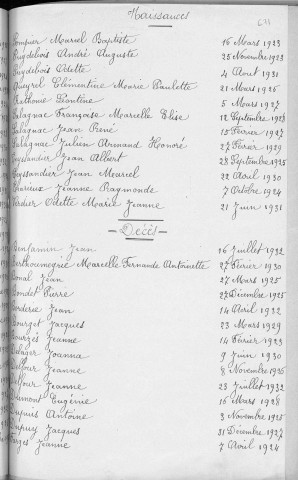 Naissances
Pompier Marcel Baptiste 16 Mars 1923
Puydebois André Auguste 25 Novembre 1923
Puydebois Odette 4 Aout 1931
Queyrel Clémentine Marie Paulette 21 Mars 1926
Rathonie Léontine 5 Mars 1927
Salagnac Françoise Marcelle Elise 12 Septembre 1928
Salagnac Jean René 15 Février 1927
Salagnac Julien Armand Honoré 27 Février 1929
Jean Albert 28 Septembre 1925
Jean Marcel 22 Avril 1930
Jeanne Raymonde 7 Octobre 1924
Verdier Odette Marie Jeanne 21 Juin 1931
Décès
Benjamin Jean 16 Juillet 1932
Berthoumegré Marcelle Fernande Antoinette 27 Février 1930
Bonal Jean 27 Mars 1925
Bondet Pierre 27 Décembre 1925
Borderie Jean 14 Avril 1932
Bourget Jacques 23 Mars 1929
Bourzès Jeanne 14 Février 1923
Delager Joanna 9 Juin 1930
Delfour Jeanne 8 Novembre 1926
Delfour Jeanne 23 Juillet 1932
Dumont Eugénie 16 Mars 1928
Dupuis Antoine 3 Novembre 1925
Dupuy Jacques 31 Décembre 1927
Farges Jeanne 7 Avril 1924